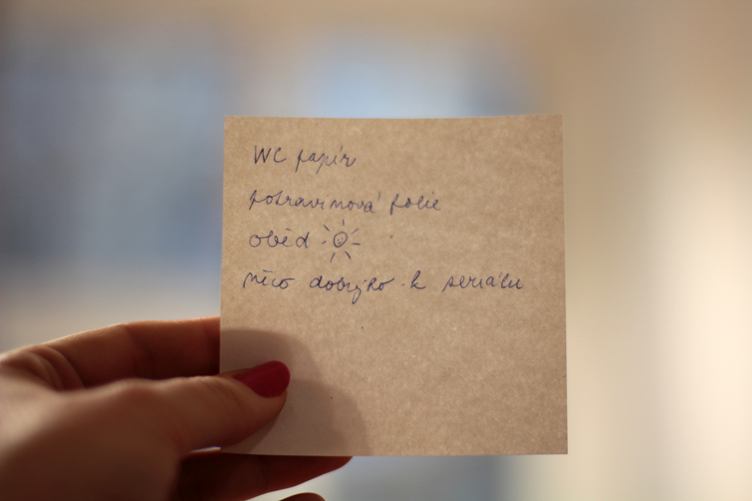 WC papír
potravinová folie
oběd
něco dobrýho k seriálu